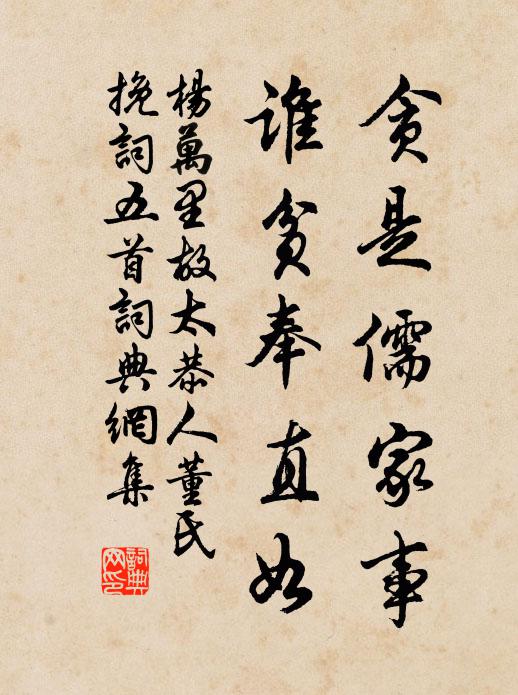 貧是儒家事
誰貧奉直如
楊萬里故太恭人董氏
挽詞五首詞典網集
詞典
网印